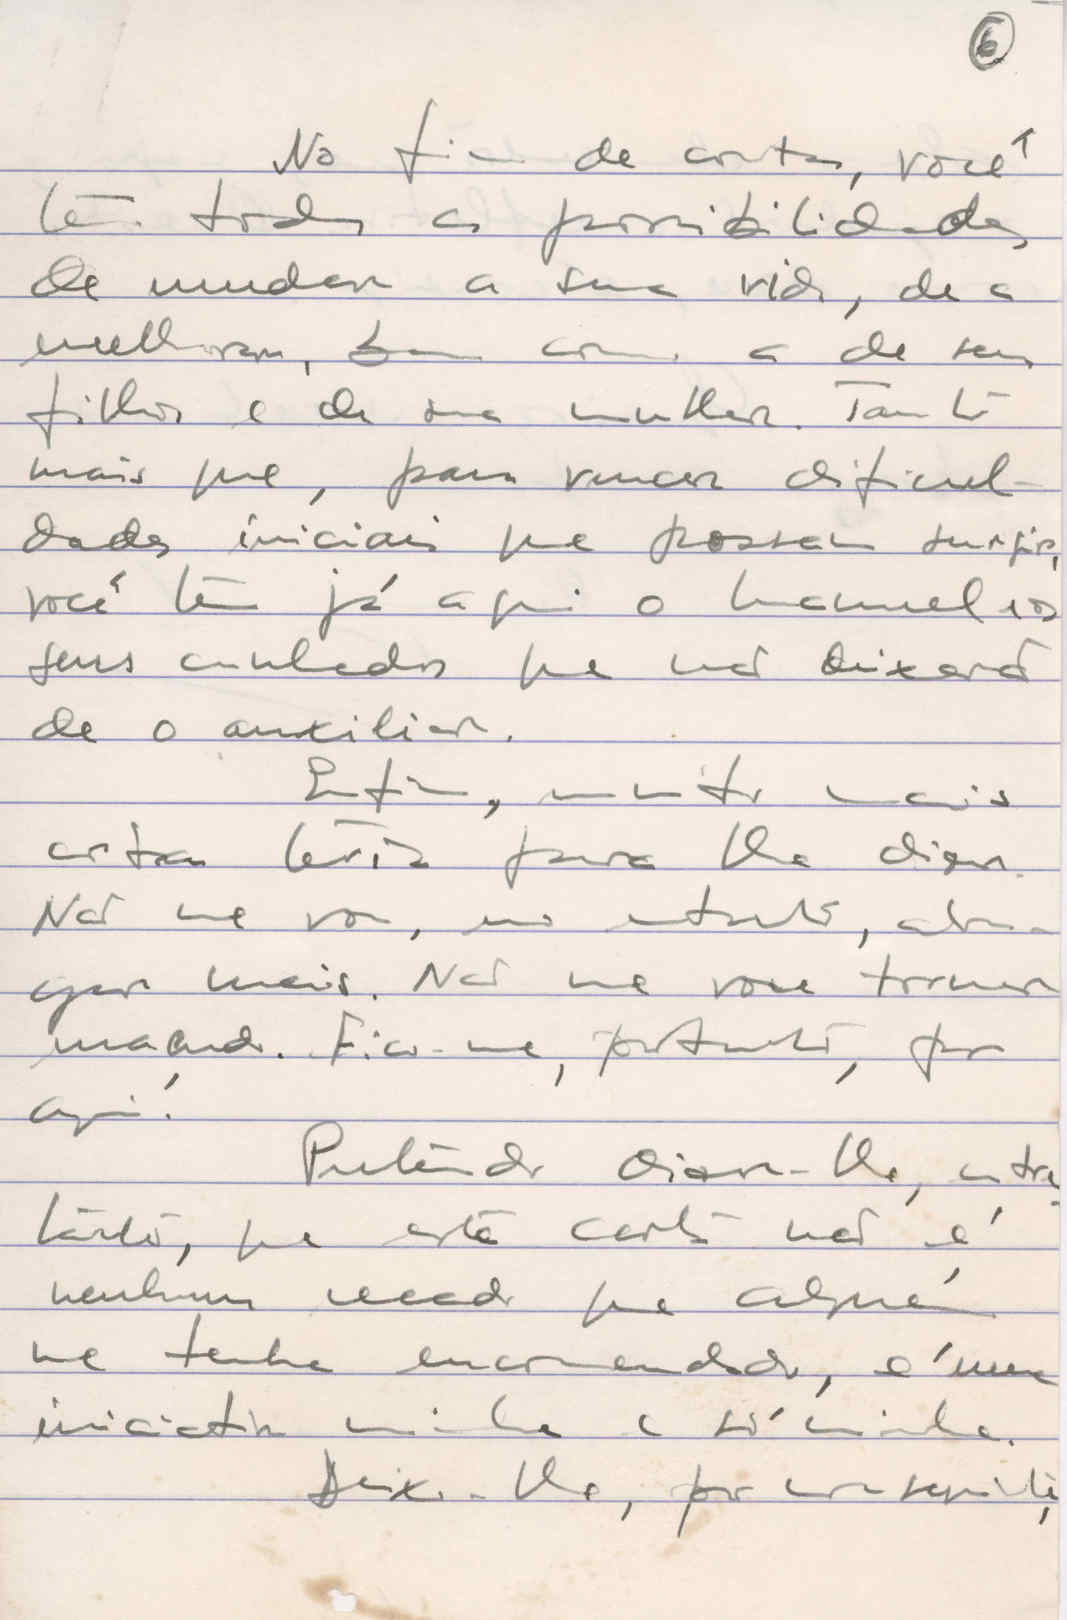 6
No fim de contas, você
tem todas as possibilidades
de mudar a sua vida, de a
melhorar, bem como a de seus
filhos e de sua mulher. Tanto
mais que, para vencer dificul-
dades iniciais que possam surgir,
você tem já aqui o Manuel e os
seus cunhados que não deixarão
de o auxiliar.
Enfim, muito mais
coisas teria para lhe dizer.
Não me vou, no entanto, alon-
gar mais. Não me vou tornar
maçador. Fico-me, portanto, por
aqui.
Pretendo dizer-lhe, entre-
tanto, que esta carta não é
nenhum recado que alguém
me tenha encomendado, é uma
iniciativa minha e só minha.
Deixo-lhe, por conseguinte,